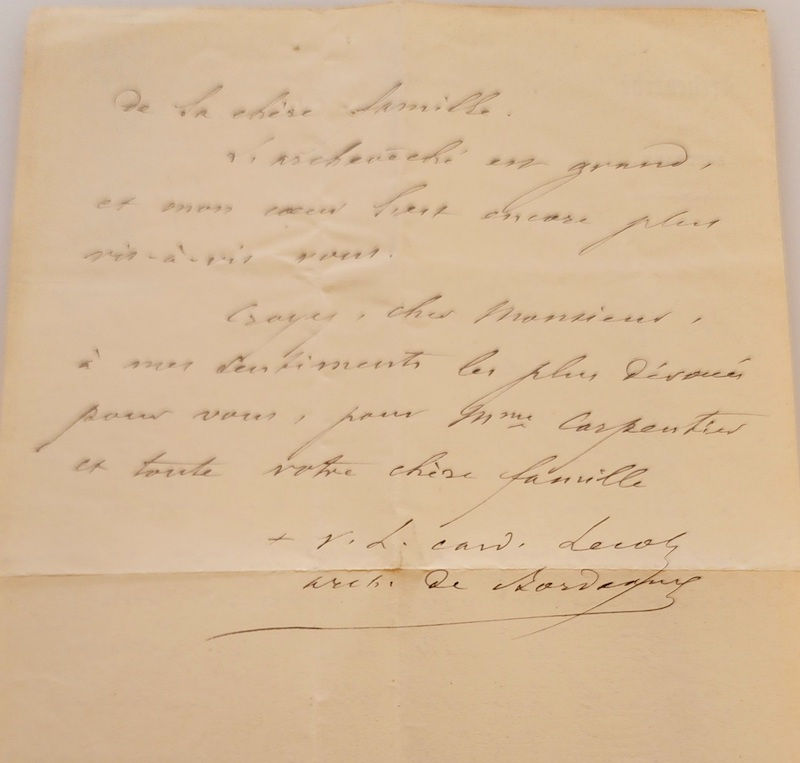 de la chère famille.
L'archevêché est grand,
et mon cœur l'est encore plus
vis-à-vis vous.
Croyez, cher Monsieur,
à mes sentiments les plus dévoués
pour vous, pour Mme Carpentier
et toute votre chère famille
+ V. L. card. Lecot
arch. de Bordeaux